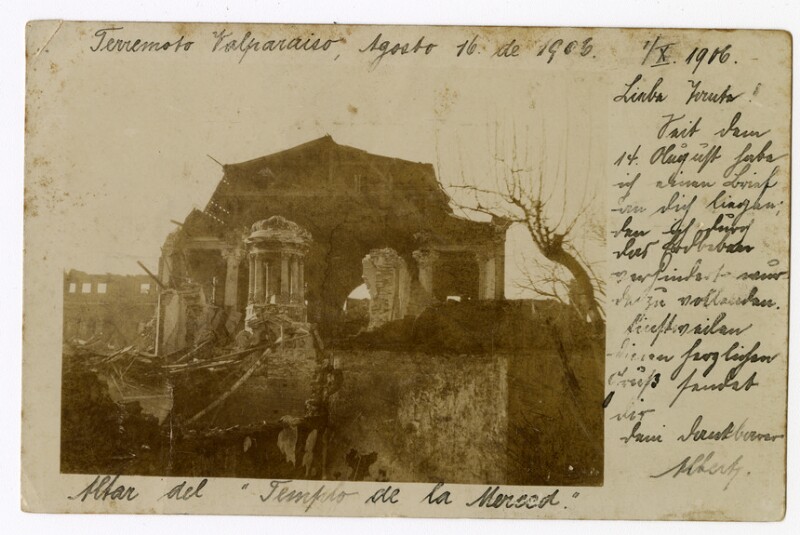 Terremoto Valparaiso, Agosto 16. de 1906.
1/X. 1906.
Liebe Tante!
Seit dem
14. August habe
ich einen Brief
an dich liegen,
den ich durch
das Erdbeben
verhindert wur-
de zu vollenden.
Einstweilen
einen herzlichen
Gruß sendet
dir
dein dankbarer
Albert.
Altar del "Templo de la Merced."